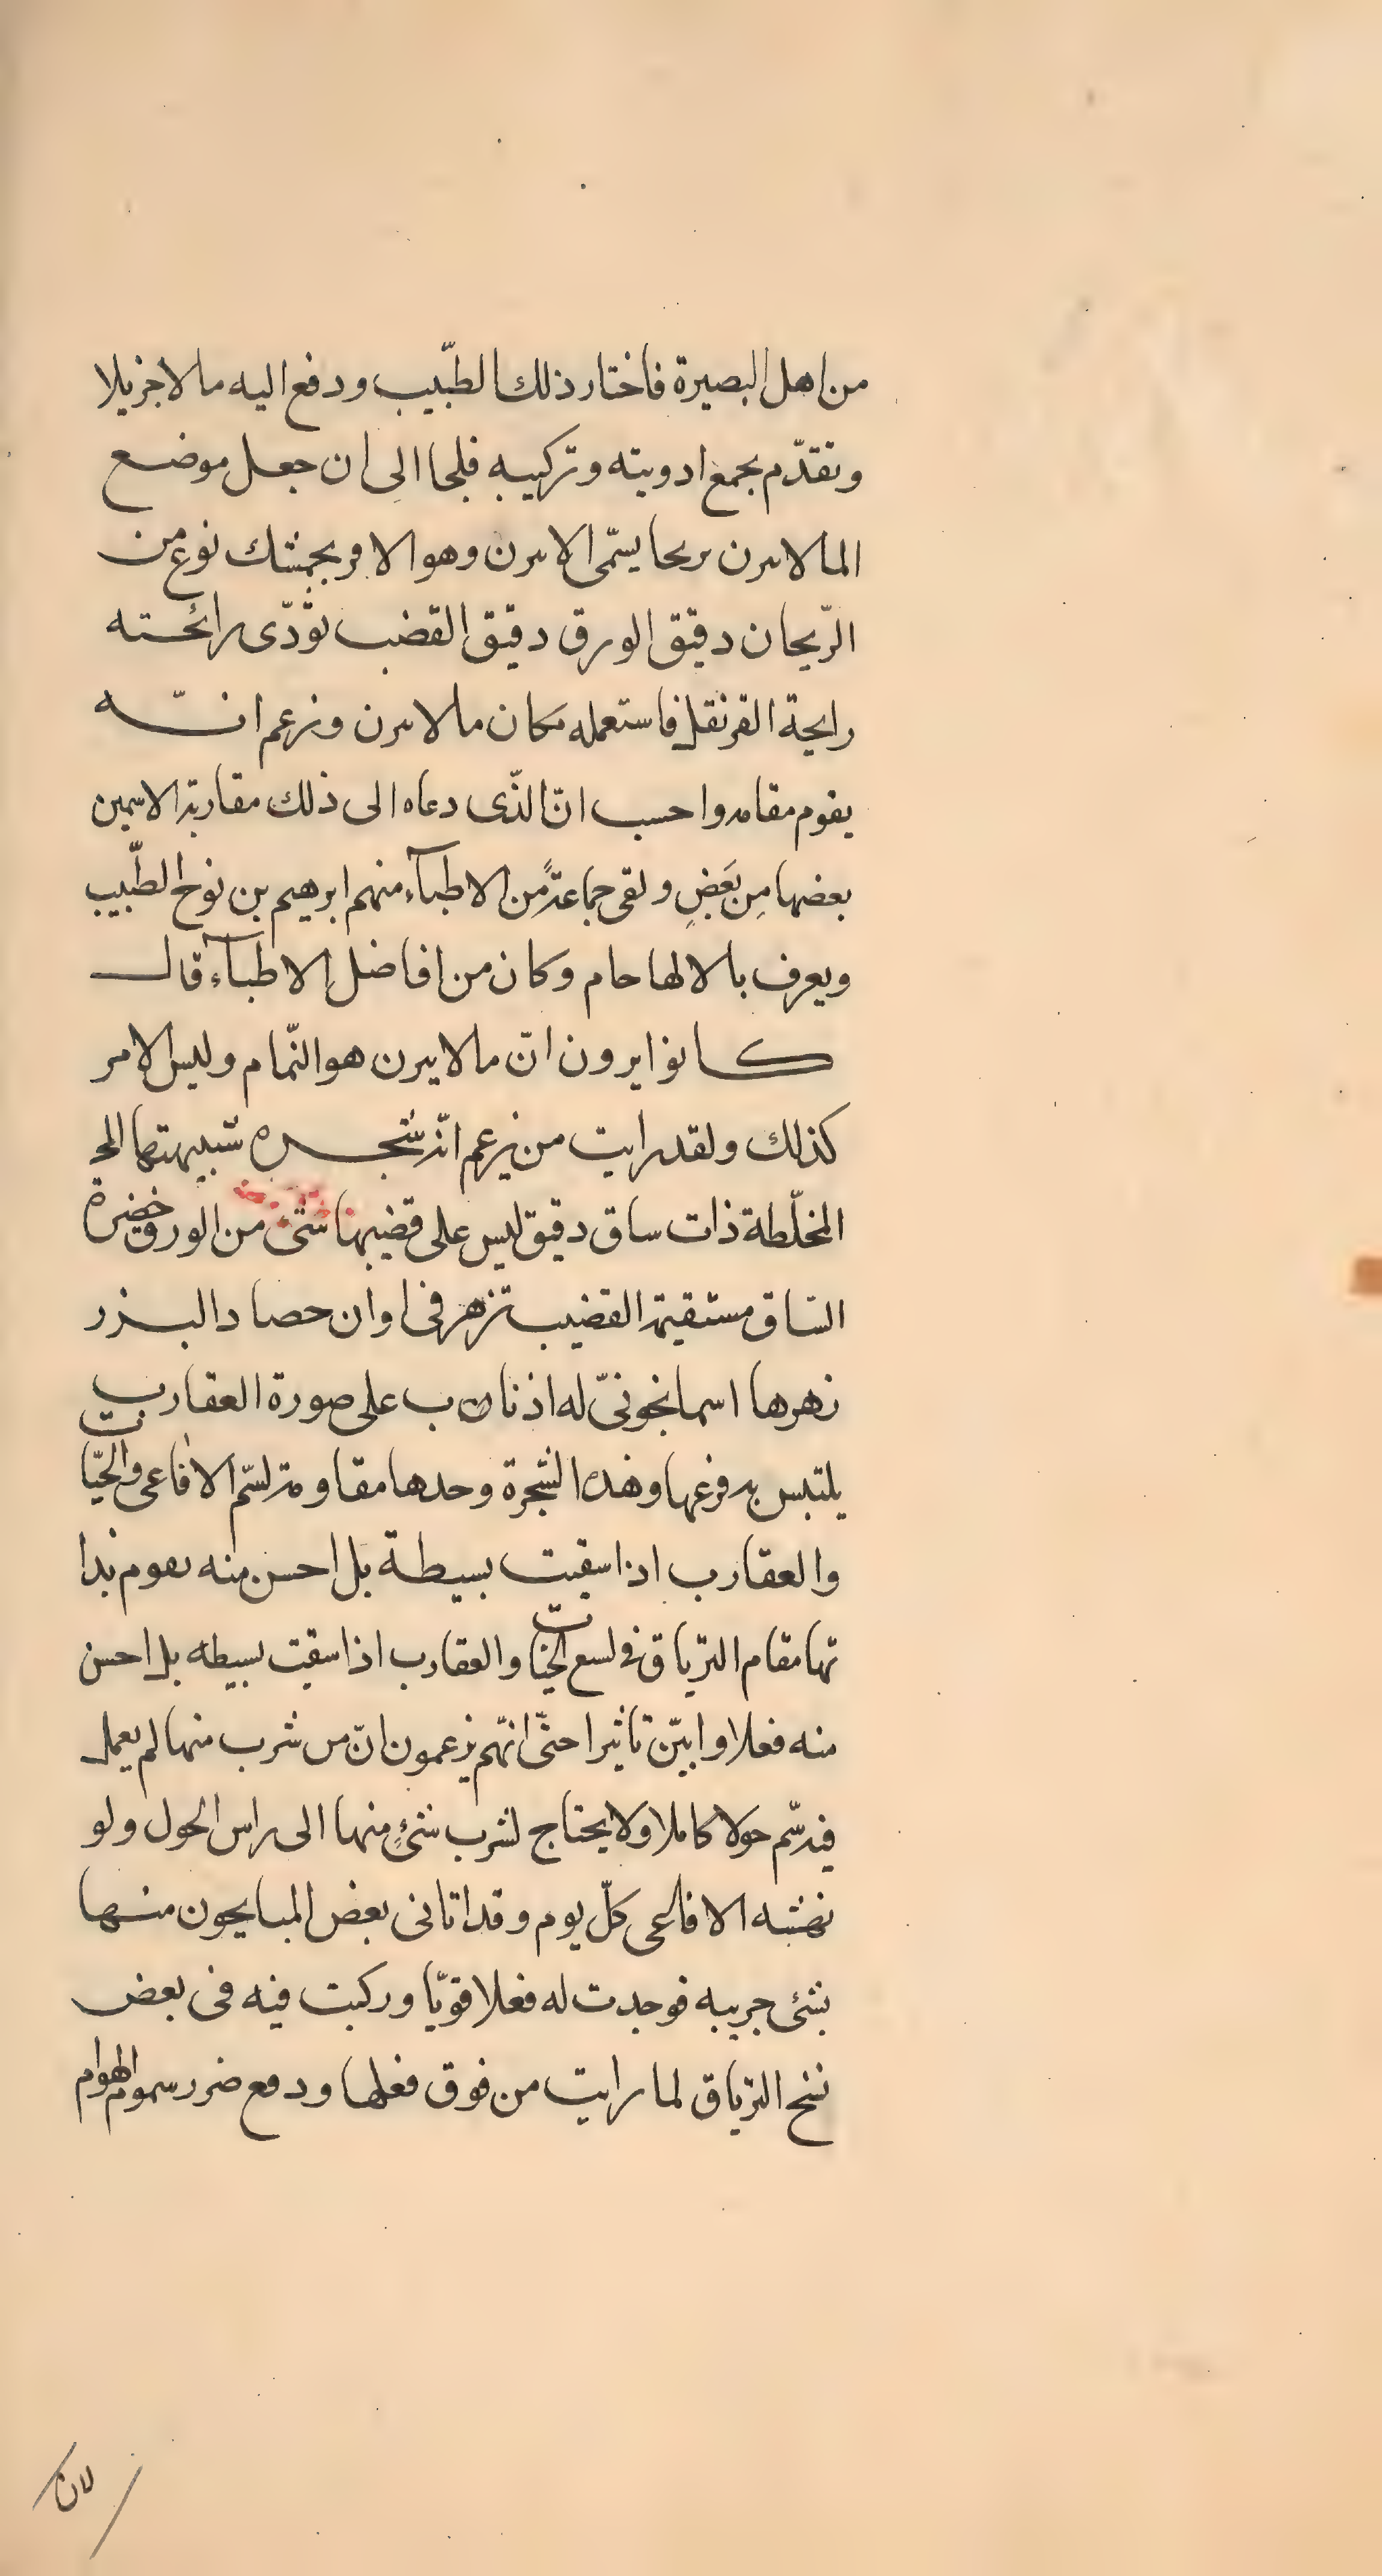 من اهل البصيرة فاختار ذلك الطّبيب ودفع اليه مالا جزيلا
وتقدّم بجمع ادويته وتركيبه فلجا الى ان جعل موضع
المالاىىرن ىريحا يسمّى الاىىرن وهو الافرىجمشك نوع من
الرّيحان دقيق الورق دقيق القضب تؤدّى رائحته
رايحة القرنفل فاستعمله مكان مالاىىرن وزعم انّه
يقوم مقامه واحسب انّ الذّى دعاه الى ذلك مقاربة الاسمين
بعضها مِن بَعَضٍ ولقى جماعةً من الاطبآء منهم ابرهيم بن نوح الطّبيب
ويعرف بالالهاحام وكان من افاضل الاطبآء قال
كانوا يرون انّ مالايىرن هو النّمام وليس الامر
كذلك ولقد رايت من يزعم انّه شجره شبيهتها الى
المخلّطة ذات ساق دقيق ليس على قضيبها شئ من الورق خضرة
السّاق مستقيمة القضيب تزهر فى اوان حصاد البزر
زهرها اسمانجونىّ له اذناب على صورة العقارب
يلتبس به فرعها وهذه الشجرة وحدها مقاومة لسّم الافاعى والحيّات
والعقارب اذا سقيت بسيطة بل احسن منه ىعوم بذا
تها مقام الترياق فى لسع الحيّات والعقارب اذا سقيت بسيطه بل احسن
منه فعلا وابيّن تاثيرا حتّى انّهم يزعمون انّ من شرب منها لم يعمل
فيه سّم حولا كاملا ولا يحتاج لشرب شئٍ منها الى راس الحول ولو
نهشه الافاعى كلّ يوم وقد اتانى بعض المىايحون منها
بشئ جربىه فوجدت له فعلا قويّا وركبت فيه فى بعض
نسخ الترياق لما رايت من فوق فعلها ودفع ضرر سموم الهوام